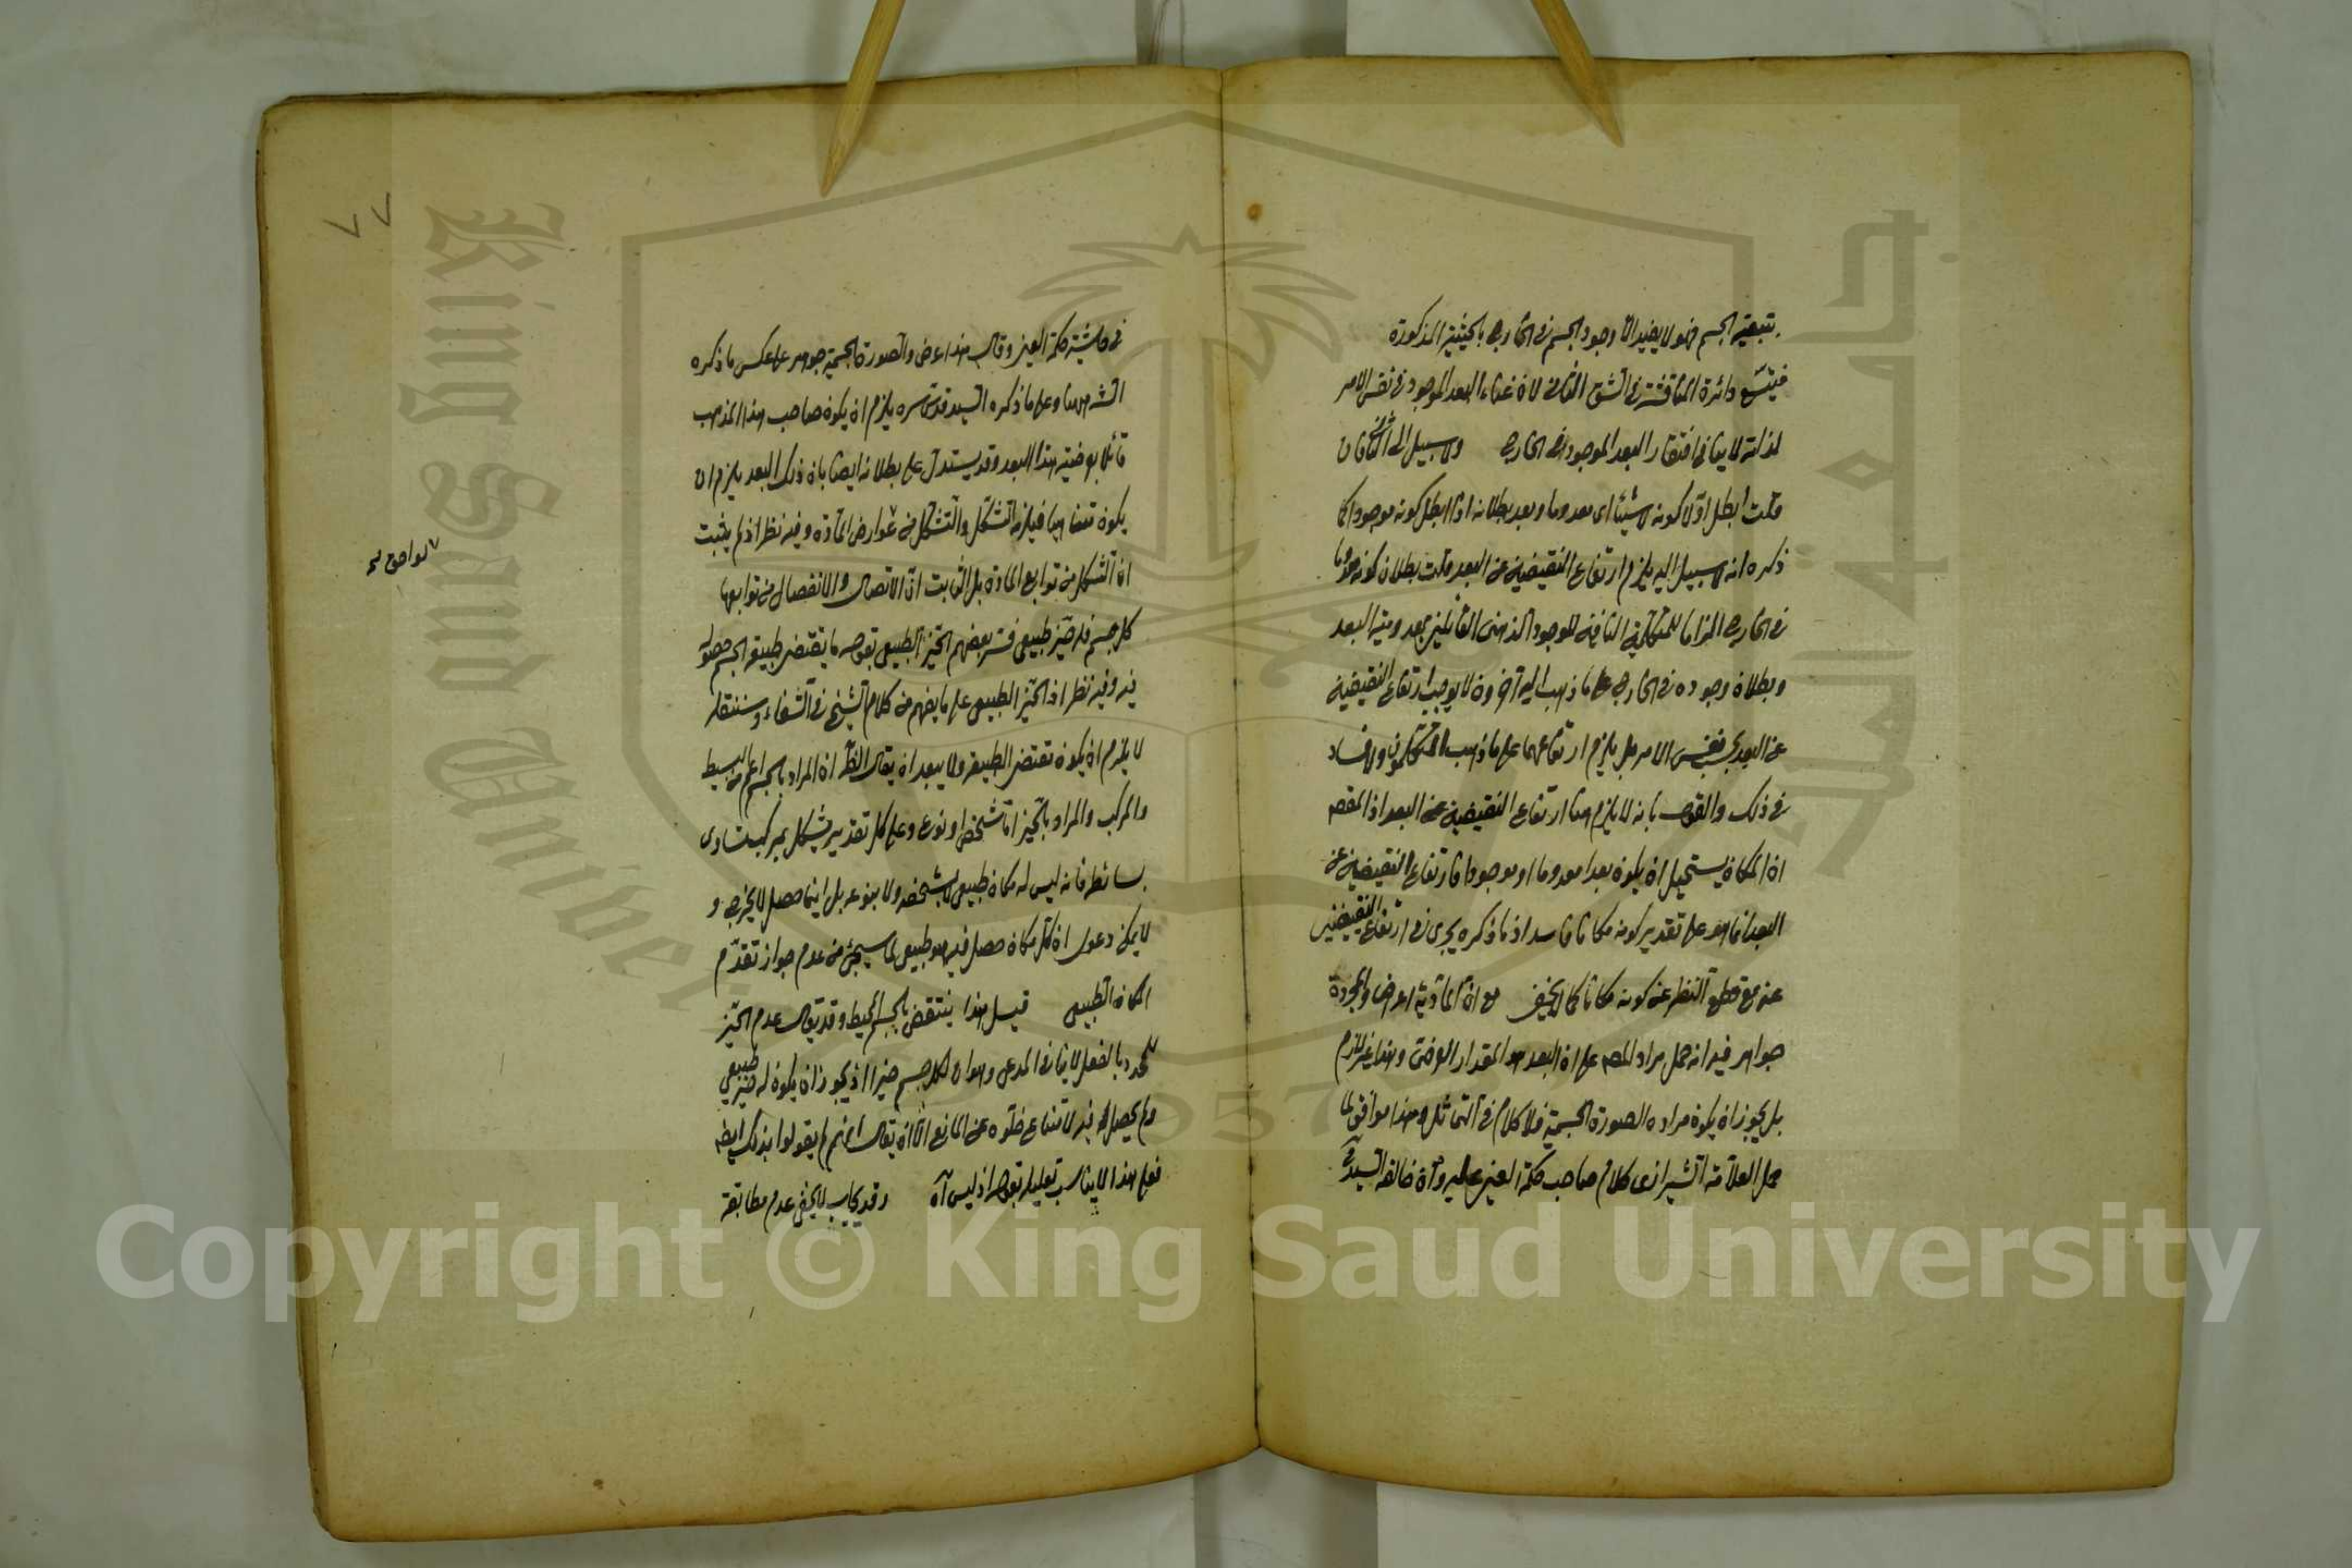 بتبعية الجسم فهو لا يفيد الا وجود الجسم فى الخارج بالحيثية المذكورة
فيتسع دائرة المناقشة فى الشق الثانى لان غناء البعد الموجود فى نفس الامر
لذاته لا ينافى افتقار البعد الموجود فى الخارج ولا سبيل الى الثانى فان
قلت ابطل اولا كونه لا شيئا اى معدوما وبعد بطلانه اذا ابطل كونه موجودا كما
ذكره انه لا سبيل اليه يلزم ارتفاع النقيضين عن البعد قلت بطلان كونه معدوما
فى الخارج الزاما للمتكلمين النافين للوجود الذهنى القائلين بعدمية البعد
وبطلان وجوده فى الخارج على ما ذهب اليه آخرون لا يوجب ارتفاع النقيضين
عن البعد بحسب نفس الامر بل يلزم ارتفاعهما على ما ذهب المتكلمون ولا فساد
فى ذلك والقول بانه لا يلزم هنا ارتفاع النقيضين عن البعد اذ المقصد
ان المكان يستحيل ان يكون بعدا معدوما او موجودا فارتفاع النقيضين عن
البعد انما هو على تقدير كونه مكانا فاسد اذ ما ذكره يجرى فى ارتفاع النقيضين
عنه مع قطع النظر عن كونه مكانا كما لا يخفى مع ان المادية اعراض والمجردة
جواهر فيه انه حمل مراد المصـ على ان البعد هو المقدار العرضى وهذا غير لازم
بل يجوز ان يكون مراده الصورة الجسمية فلا كلام فى التماثل وهذا موافق لما
حمل العلامة الشيرازى كلام صاحب حكمة العين عليه وان خالفه السيد
فى حاشية حكمة العين وقال هذا عرض والصورة الجسمية جوهر على عكس ما ذكره
الشـ هنا وعلى ما ذكره السيد قدس سره يلزم ان يكون صاحب هذا المذهب
قائلا بعرضية هذا البعد وقد يستدل على بطلانه ايضا بان ذلك البعد يلزم ان
يكون متناهيا فيلزمه التشكل والتشكل من عوارض المادة وفيه نظر اذ لم يثبت
ان الشكل من توابع المادة بل الثابت ان الاتصال والانفصال من توابعها
كل جسم فله حيز طبيعى فسر بعضهم الحيز الطبيعى بقوله ما يقتضى طبيعة الجسم حصوله
فيه وفيه نظر اذ الحيز الطبيعى على ما يفهم من كلام الشيخ فى الشفاء وسننقله
لا يلزم ان يكون تقتضى الطبيعة ولا يبعد ان يقال الظ ان المراد بالجسم اعم من البسيط
والمركب والمراد بالحيز اما شخصى او نوعى وعلى كل تقدير يشكل بمركب تساوى
بسائطه فانه ليس له مكان طبيعى لا بشخصه ولا بنوعه بل اينما حصل لا يخرج و
لا يمكن دعوى ان كل مكان حصل فيه هو طبيعى لما سيجئ من عدم جواز تقدم
المكان الطبيعى قيل هذا ينتقض بالجسم المحيط وقد يقال عدم الحيز
للمحدد بالفعل لا ينافى المدعى وهو ان لكل جسم حيزا اذ يجوز ان يكون له حيز طبيعى
ولم يحصل له فيه لامتناع خلوه عن المانع الا ان يقال انهم لم يقولوا بذلك ايضا
فعلى هذا لا يناسب تعليله بقوله اذ ليس آه وقد يجاب لا يخفى عدم مطابقة
٧٧